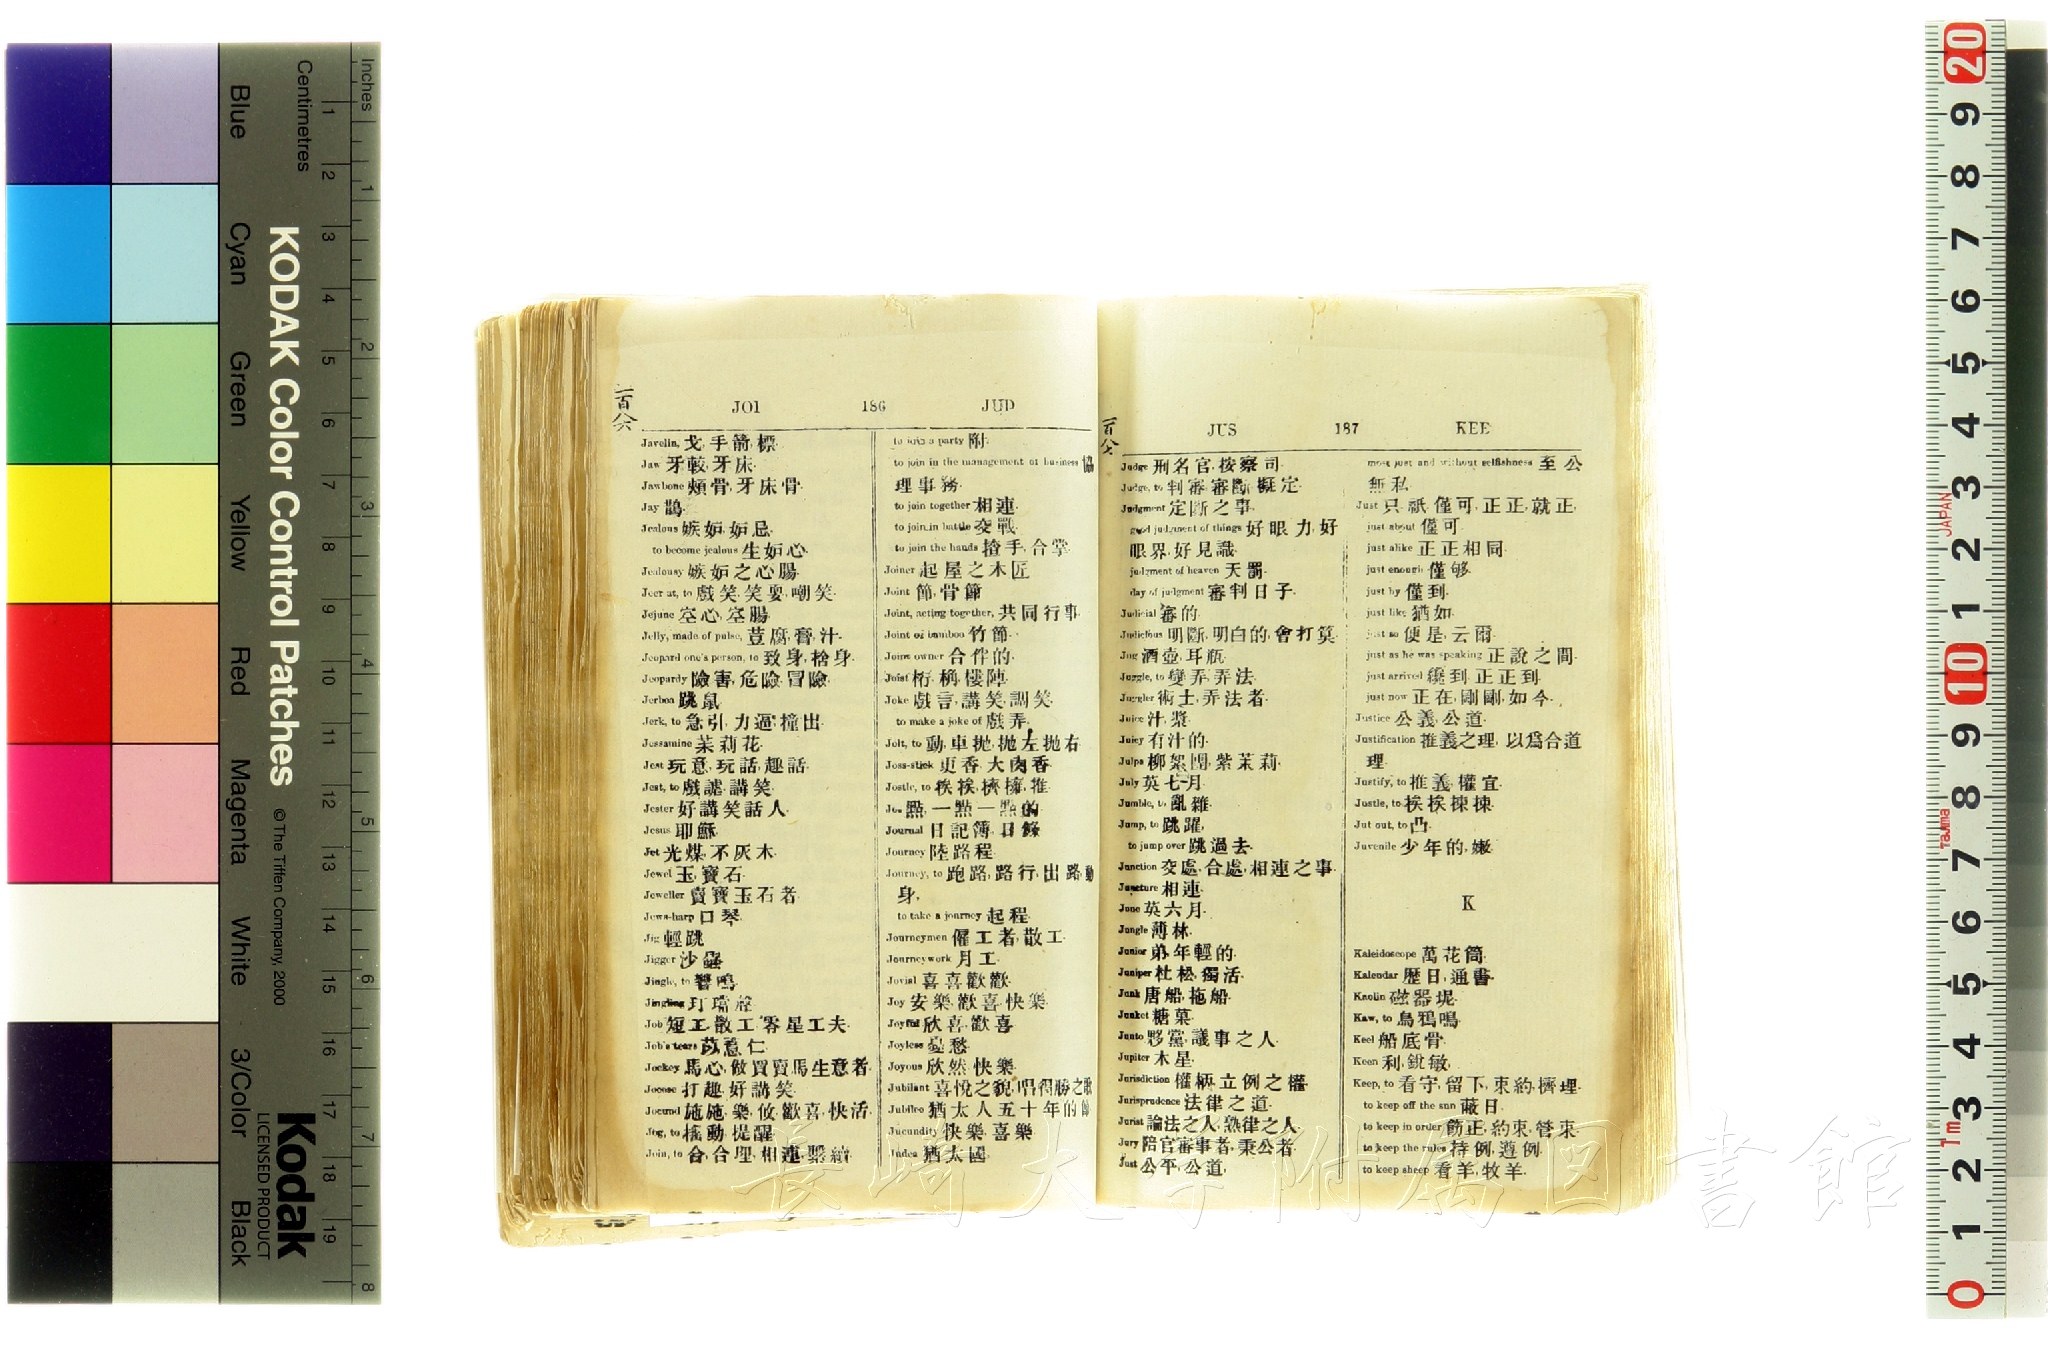 Inches
Centimetres
KODAK Color Control Patches © The Tiffen Company, 2000
Kodak
LICENSED PRODUCT
Blue
Cyan
Green
Yellow
Red
Magenta
White
3/Color
Black
JOI 186 JUD
Javelin, 戈, 手箭, 標.
Jaw 牙較, 牙床.
Jawbone 頰骨, 牙床骨.
Jay 鵲.
Jealous 嫉妬, 妬忌.
to become jealous 生妬心.
Jealousy 嫉妬之心腸.
Jeer at, to 戲笑, 笑耍, 嘲笑.
Jejune 空心, 空腸.
Jelly, made of pulse, 荳腐, 膏, 汁.
Jeopard one's person, to 致身, 捨身.
Jeopardy 險害, 危險, 冒險.
Jerboa 跳鼠.
Jerk, to 急引, 力逼, 撞出.
Jessamine 茉莉花.
Jest 玩意, 玩話, 趣話.
Jest, to 戲謔, 講笑.
Jester 好講笑話人.
Jesus 耶穌.
Jet 光煤, 不灰木.
Jewel 玉, 寶石.
Jeweller 賣寶玉石者.
Jews-harp 口琴.
Jig 輕跳
Jigger 沙蝨.
Jingle, to 響鳴.
Jingling 玎璫聲
Job 短工, 散工, 零星工夫.
Job's tears 苡薏仁.
Jockey 馬心, 做買賣馬生意者.
Jocose 打趣, 好講笑.
Jocund 施施, 樂攸, 歡喜, 快活.
Jog, to 搖動, 提醒
Join, to 合, 合埋, 相連, 繫續.
to join a party 附.
to join in the management of business 協
理事務.
to join together 相連.
to join in battle 交戰.
to join the hands 揸手, 合掌.
Joiner 起屋之木匠
Joint 節, 骨節
Joint, acting together, 共同行事.
Joint of bamboo 竹節.
Joint owner 合伴的.
Joist 桁, 桷, 樓陣.
Joke 戲言, 講笑, 調笑.
to make a joke of 戲弄.
Jolt, to 動, 車抛, 抛左抛右
Joss-stick 更香, 大肉香.
Jostle, to 挨挨, 擠擁, 推.
點, 一點一點的
Journal 日記簿, 日錄
Journey 陸路程.
Journey, to 跑路, 路行, 出路, 動
身.
to take a journey 起程.
Journeymen 僱工者, 散工.
Journeywork 月工.
Jovial 喜喜歡歡.
Joy 安樂, 歡喜, 快樂.
Joyful 欣喜, 歡喜
Joyless 憂愁.
Joyous 欣然, 快樂.
Jubilant 喜悅之貌, 唱得勝之歌
Jubilee 猶太人五十年的節
Jucundity 快樂, 喜樂.
Judea 猶太國.
JUS 187 KEE
Judge 刑名官, 按察司.
Judge, to 判審, 審斷, 擬定.
Judgment 定斷之事.
good judgment of things 好眼力, 好
眼界, 好見識.
judgment of heaven 天罰.
day of judgment 審判日子.
Judicial 審的.
Judicious 明斷, 明白的, 會打算.
Jug 酒壺, 耳瓶.
Juggle, to 變弄, 弄法.
Juggler 術士, 弄法者.
Juice 汁, 漿.
Juicy 有汁的.
Julpa 柳絮團, 紫茉莉.
July 英七月.
Jumble, to 亂雜.
Jump, to 跳躍.
to jump over 跳過去.
Junction 交處, 合處, 相連之事.
Juncture 相連.
June 英六月.
Jungle 薄林.
Junior 弟, 年輕的.
Juniper 杜松, 獨活.
Junk 唐船, 拖船.
Junket 糖菓.
Junto 夥黨, 議事之人.
Jupiter 木星.
Jurisdiction 權柄, 立例之權.
Jurisprudence 法律之道.
Jurist 論法之人, 熟律之人.
Jury 陪官審事者, 秉公者.
Just 公平, 公道.
most just and without selfishness 至公
無私.
Just 只, 祇, 僅可, 正正, 就正.
just about 僅可.
just alike 正正相同.
just enough 僅够.
just by 僅到.
just like 猶如.
just so 便是, 云爾.
just as he was speaking 正說之間.
just arrived 纔到, 正正到.
just now 正在, 剛剛, 如今.
Justice 公義, 公道.
Justification 推義之理, 以爲合道
理.
Justify, to 推義, 權宜.
Justle, to 挨挨㨂㨂.
Jut out, to 凸.
Juvenile 少年的, 嫩.
K
Kaleidoscope 萬花筒.
Kalendar 歷日, 通書.
Kaolin 磁器坭.
Kaw, to 烏鴉鳴.
Keel 船底骨.
Keen 利, 銳敏.
Keep, to 看守, 留下, 束約, 擠埋.
to keep off the sun 蔽日.
to keep in order 飭正, 約束, 管束.
to keep the rules 持例, 遵例.
to keep sheep 看羊, 牧羊.
長崎大学附属図書館
JAPAN
Tajima
1m